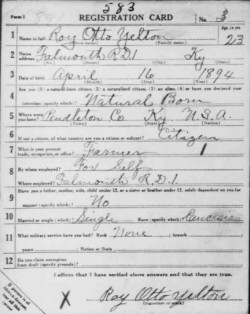 583
Form 1 REGISTRATION CARD No. 3
1 Name in full Roy Otto Yelton 23
(Given name) (Family name) Age, in yrs.
2 Home address Falmouth R.D.1 Ky
(No.) (Street) (City) (State)
3 Date of birth April 16 1894
(Month) (Day) (Year)
4 Are you (1) a natural-born citizen, (2) a naturalized citizen, (3) an alien, (4) or have you declared your intention (specify which)? Natural Born
5 Where were you born? Pendleton Co Ky U.S.A.
(Town) (State) (Nation)
6 If not a citizen, of what country are you a citizen or subject? Citizen
7 What is your present trade, occupation, or office? Farmer 1
8 By whom employed? For Self
Where employed? Falmouth R.D.1.
9 Have you a father, mother, wife, child under 12, or a sister or brother under 12, solely dependent on you for support (specify which)? No
10 Married or single (which)? Single Race (specify which)? Caucasian
11 What military service have you had? Rank None ; branch
years ; Nation or State
12 Do you claim exemption from draft (specify grounds)?
I affirm that I have verified above answers and that they are true.
X Roy Otto Yelton
(Signature or mark)